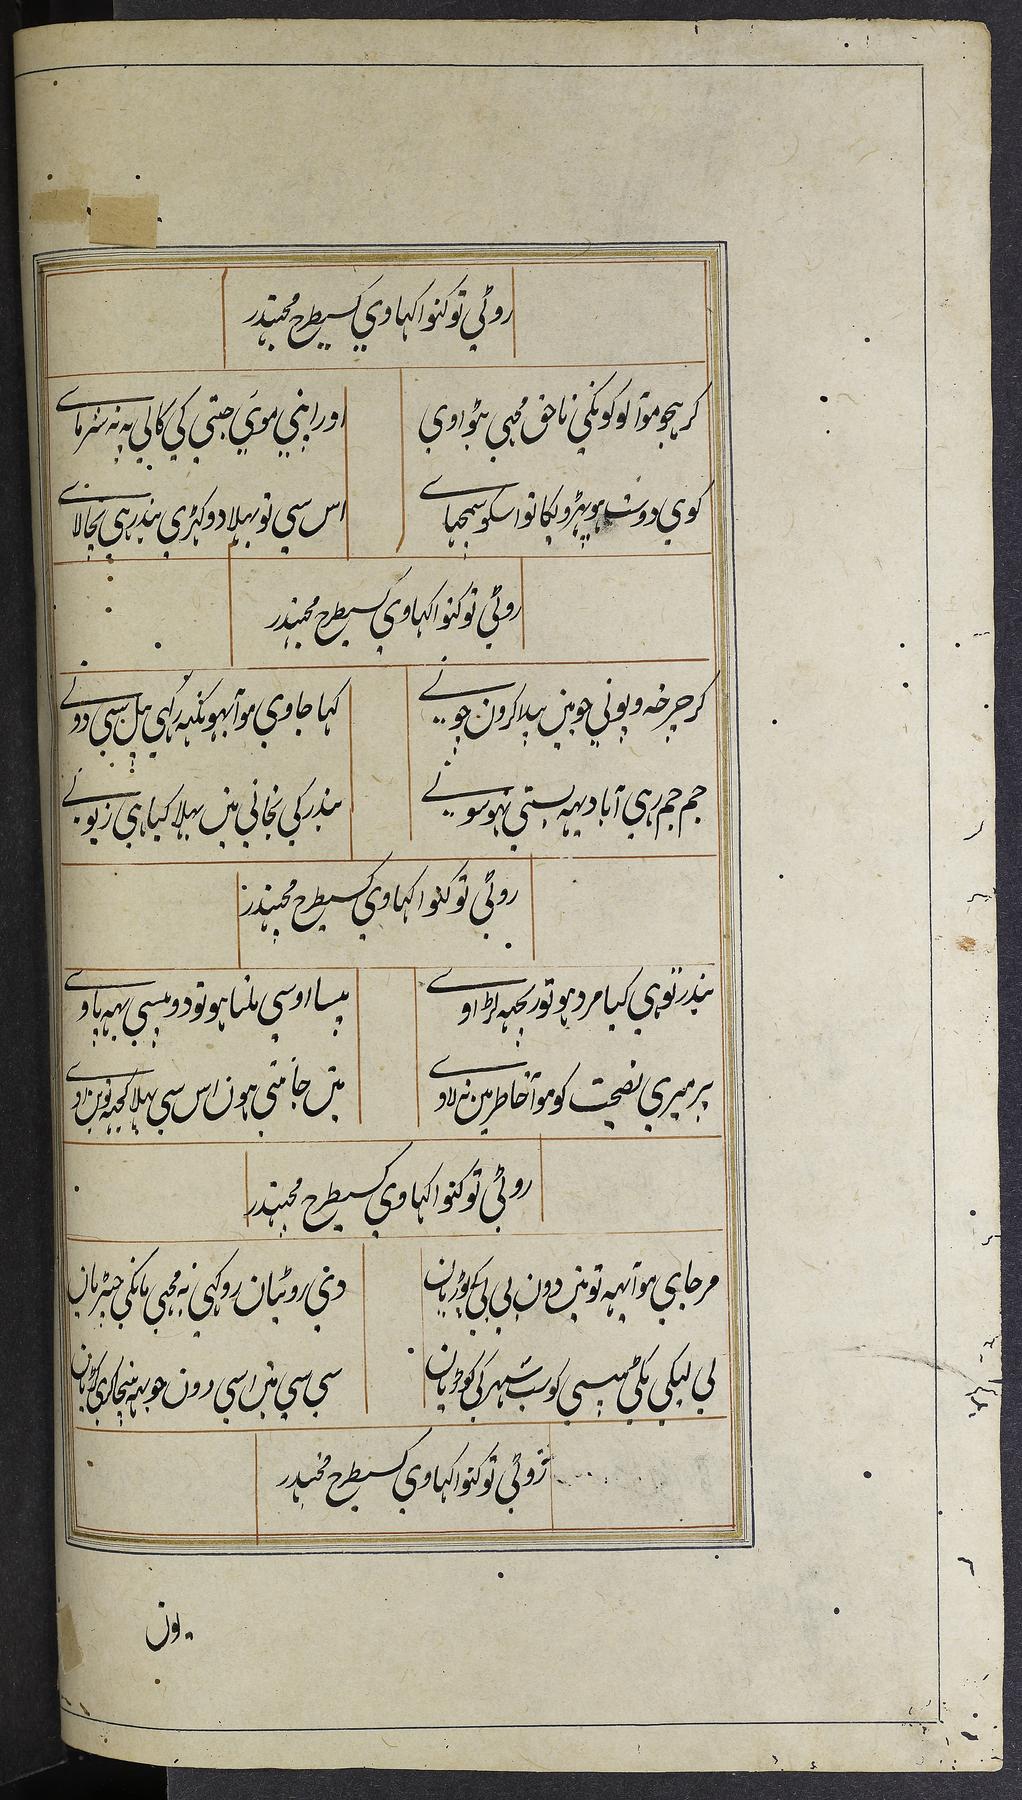 روٹی تو کنوا کہاوی کسیطرح مچہندر
کر ہجو موآ لوکونکی ناحق مجہی ہٹواوی
اور اپنی موی جیتی کی کالی پہ نہ شرماے
کوی دوست ہو پہڑویکا تو اسکو سمجہاے
اس سی تو بہلا دوکہڑی بندر ہی نچالاے
روٹی تو کنوا کہاوی کسیطرح مچہندر
کر چرخہ و پونی جو مین پہلا کرون
کہا جاوی موآ بہونکہہ رکہی پل سی دونے
جم جم رہی آباد یہہ بستی نہو سونے
بندر کی نچانی مین بہلا کیا ہی زبونے
روٹی تو کنوا کہاوی کسیطرح مچہندر
بندر توہی کیا مرد ہو تو ریچہہ لڑاوے
پیسا اوسی ملتا ہو تو دو پیسی یہہ پاوے
پر میری نصیحت کو موآ خاطر مین نہ لاوے
مین جانتی ہون اس سی بہلا کچہہ نوبن اوے
روٹی تو کنوا کہاوی کسیطرح مچہندر
مر جاي موآ یہہ تو مین دون بی بی کی پوڑیان
دنی روٹیان روکہی نہ مجہی بانکی چپڑیان
لی لیکی ٹکی پیسی کو سب شہر کی کوڑیان
سی سی مین اسی دون جو یہہ بیچا کری کڑیان
روٹی تو کنوا کہاوی کسیطرح مچہندر
یون